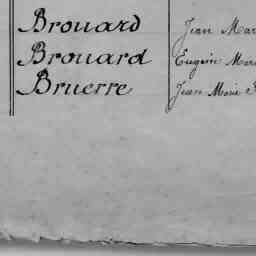 Brouard Jean Mar
Brouard Eugène Mar
Bruerre Jean Marie